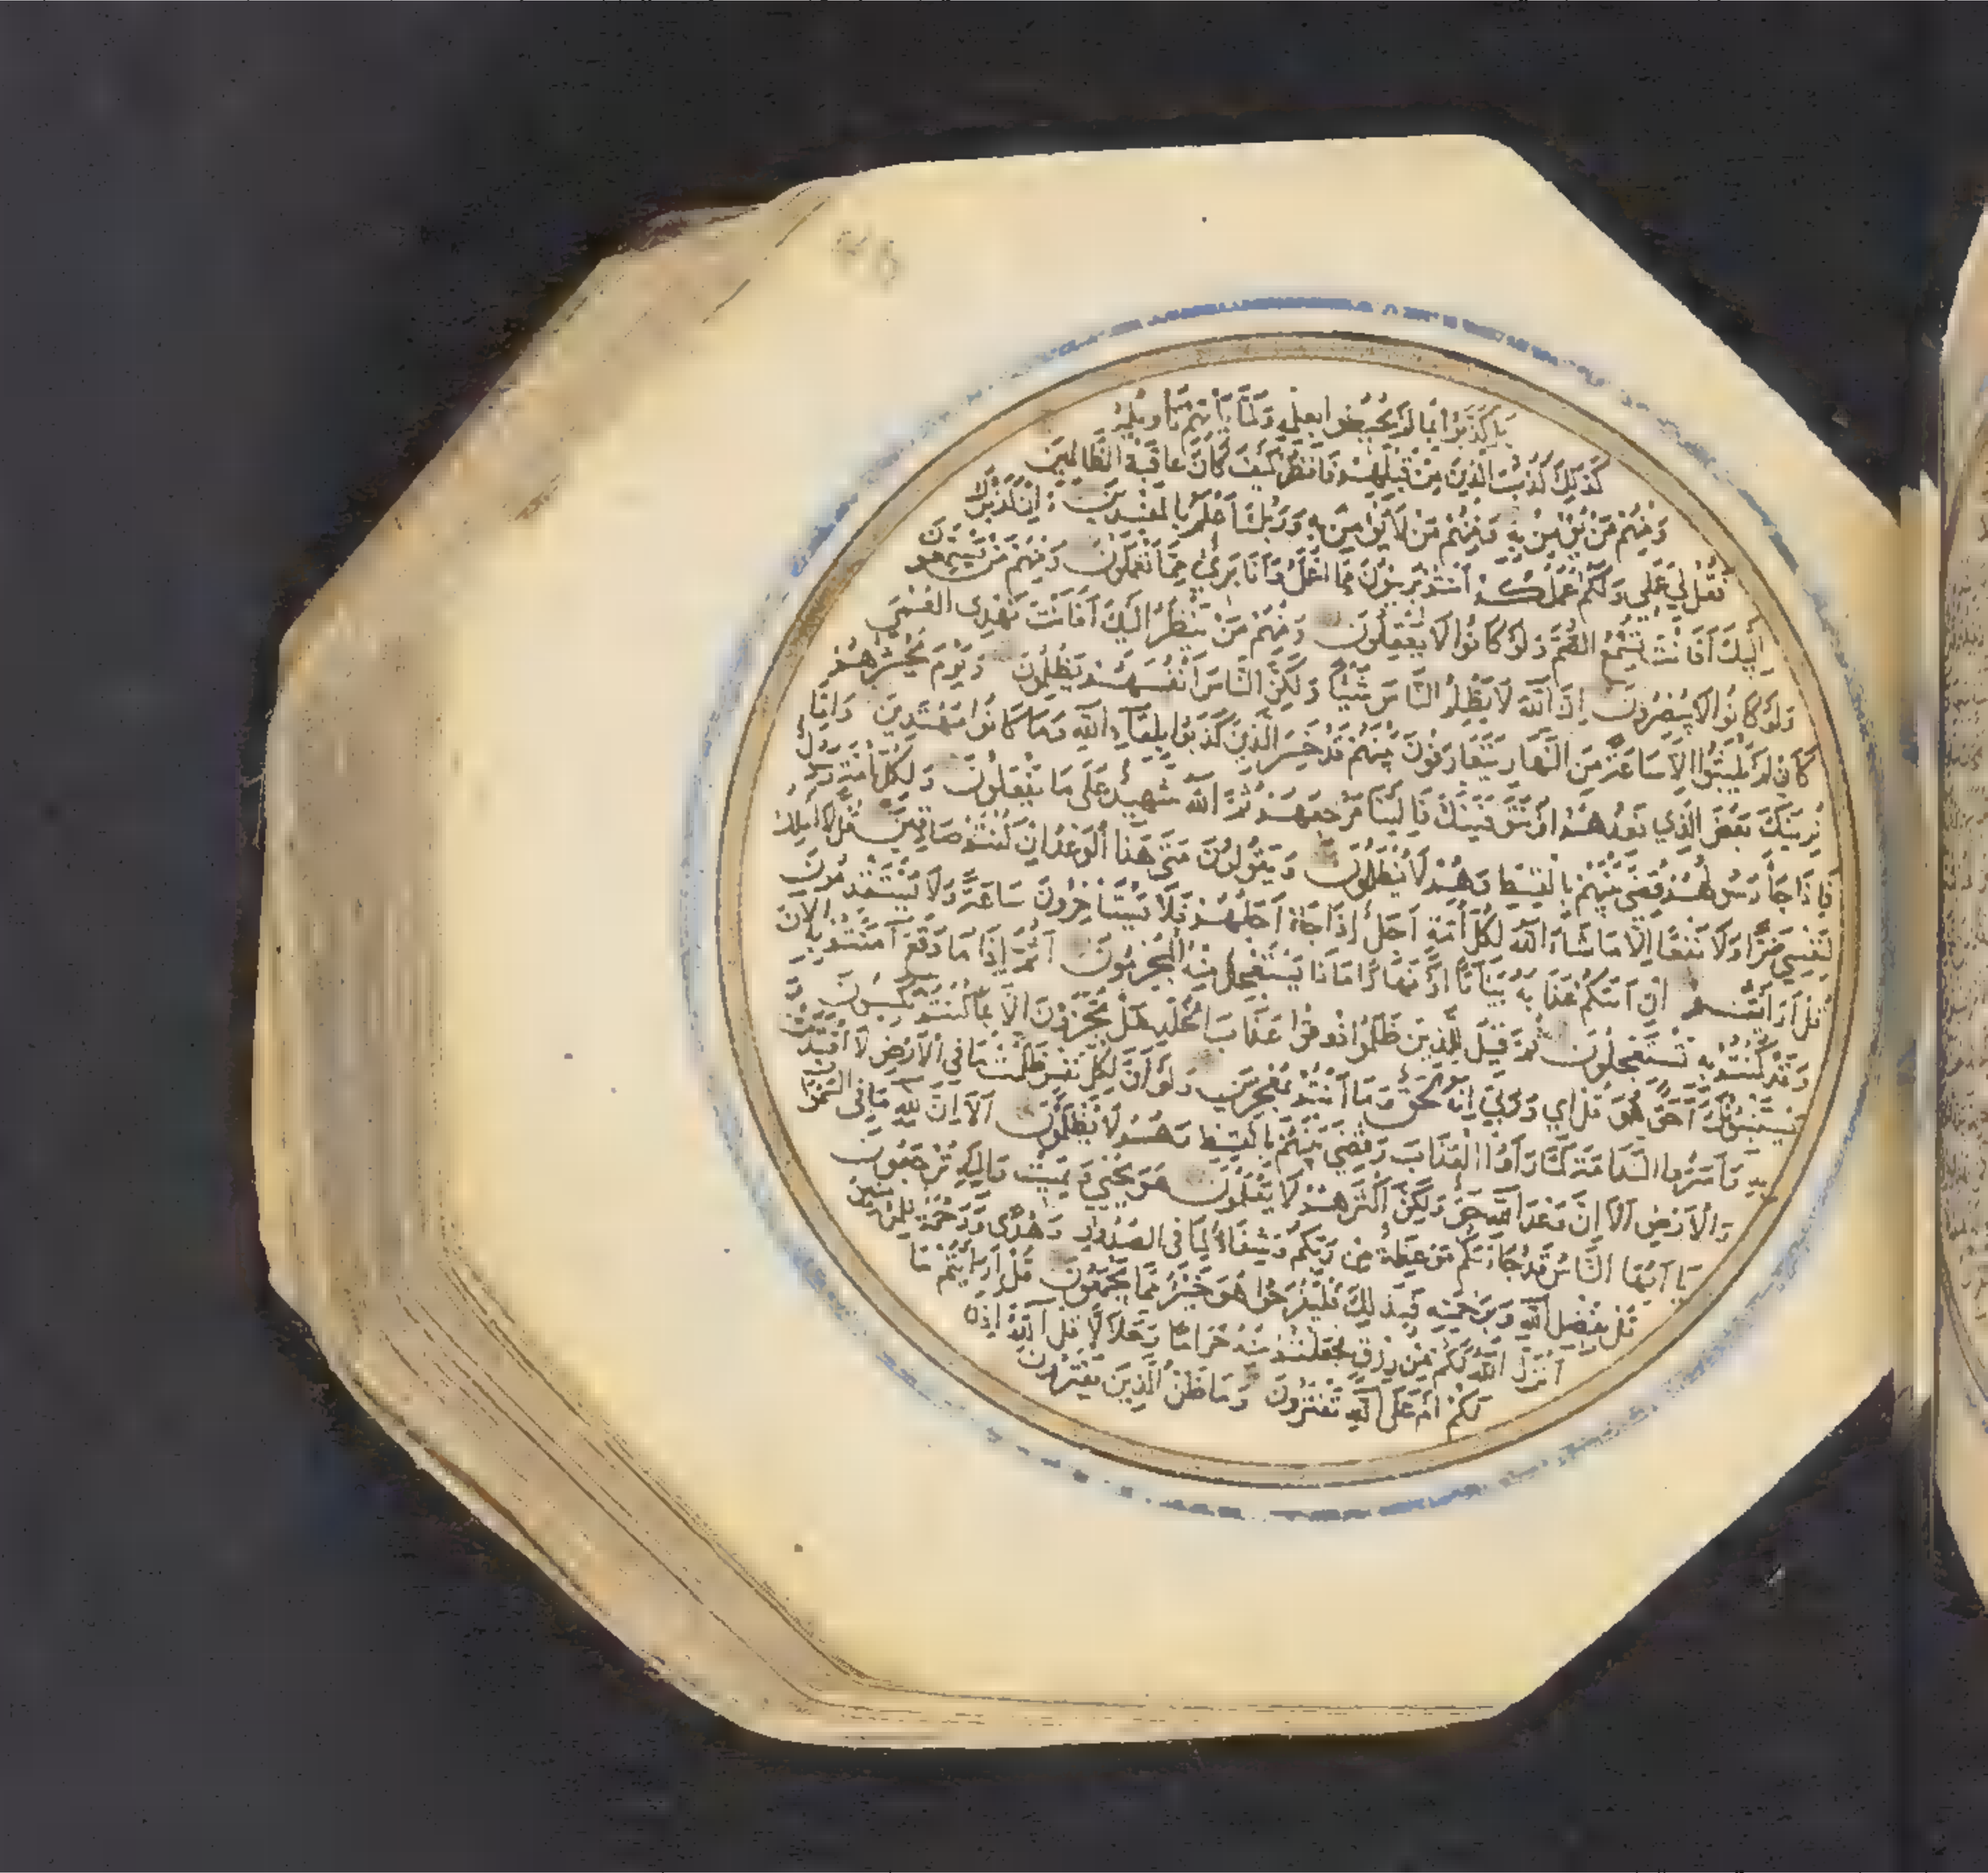 بل كذبوا بما لم يحيطوا بعلمه ولما يأتهم تأويله
كذلك كذب الذين من قبلهم فانظر كيف كان عاقبة الظالمين
ومنهم من يؤمن به ومنهم من لا يؤمن به وربك أعلم بالمفسدين وإن كذبوك
فقل لي عملي ولكم عملكم أنتم بريئون مما أعمل وأنا بريء مما تعملون ومنهم من يستمعون
إليك أفأنت تسمع الصم ولو كانوا لا يعقلون ومنهم من ينظر إليك أفأنت تهدي العمي
ولو كانوا لا يبصرون إن الله لا يظلم الناس شيئا ولكن الناس أنفسهم يظلمون ويوم يحشرهم
كأن لم يلبثوا إلا ساعة من النهار يتعارفون بينهم قد خسر الذين كذبوا بلقاء الله وما كانوا مهتدين وإما
نرينك بعض الذي نعدهم أو نتوفينك فإلينا مرجعهم ثم الله شهيد على ما يفعلون ولكل أمة رسول
فإذا جاء رسولهم قضي بينهم بالقسط وهم لا يظلمون ويقولون متى هذا الوعد إن كنتم صادقين قل لا أملك
لنفسي ضرا ولا نفعا إلا ما شاء الله لكل أمة أجل إذا جاء أجلهم فلا يستأخرون ساعة ولا يستقدمون
قل أرأيتم إن أتيكم عذابه بياتا أو نهارا ماذا يستعجل منه المجرمون أثم إذا ما وقع آمنتم به الآن
وقد كنتم به تستعجلون ثم قيل للذين ظلموا ذوقوا عذاب الخلد هل تجزون إلا بما كنتم تكسبون و
يستنبئونك أحق هو قل إي وربي إنه لحق وما أنتم بمعجزين ولو أن لكل نفس ظلمت ما في الأرض لافتدت
به وأسروا الندامة لما رأوا العذاب وقضي بينهم بالقسط وهم لا يظلمون ألا إن لله ما في السموات
والأرض ألا إن وعد الله حق ولكن أكثرهم لا يعلمون هو يحيي ويميت وإليه ترجعون
يا أيها الناس قد جاءتكم موعظة من ربكم وشفاء لما في الصدور وهدى ورحمة للمؤمنين
قل بفضل الله وبرحمته فبذلك فليفرحوا هو خير مما يجمعون قل أرأيتم ما
أنزل الله لكم من رزق فجعلتم منه حراما وحلالا قل آلله أذن
لكم أم على الله تفترون وما ظن الذين يفترون